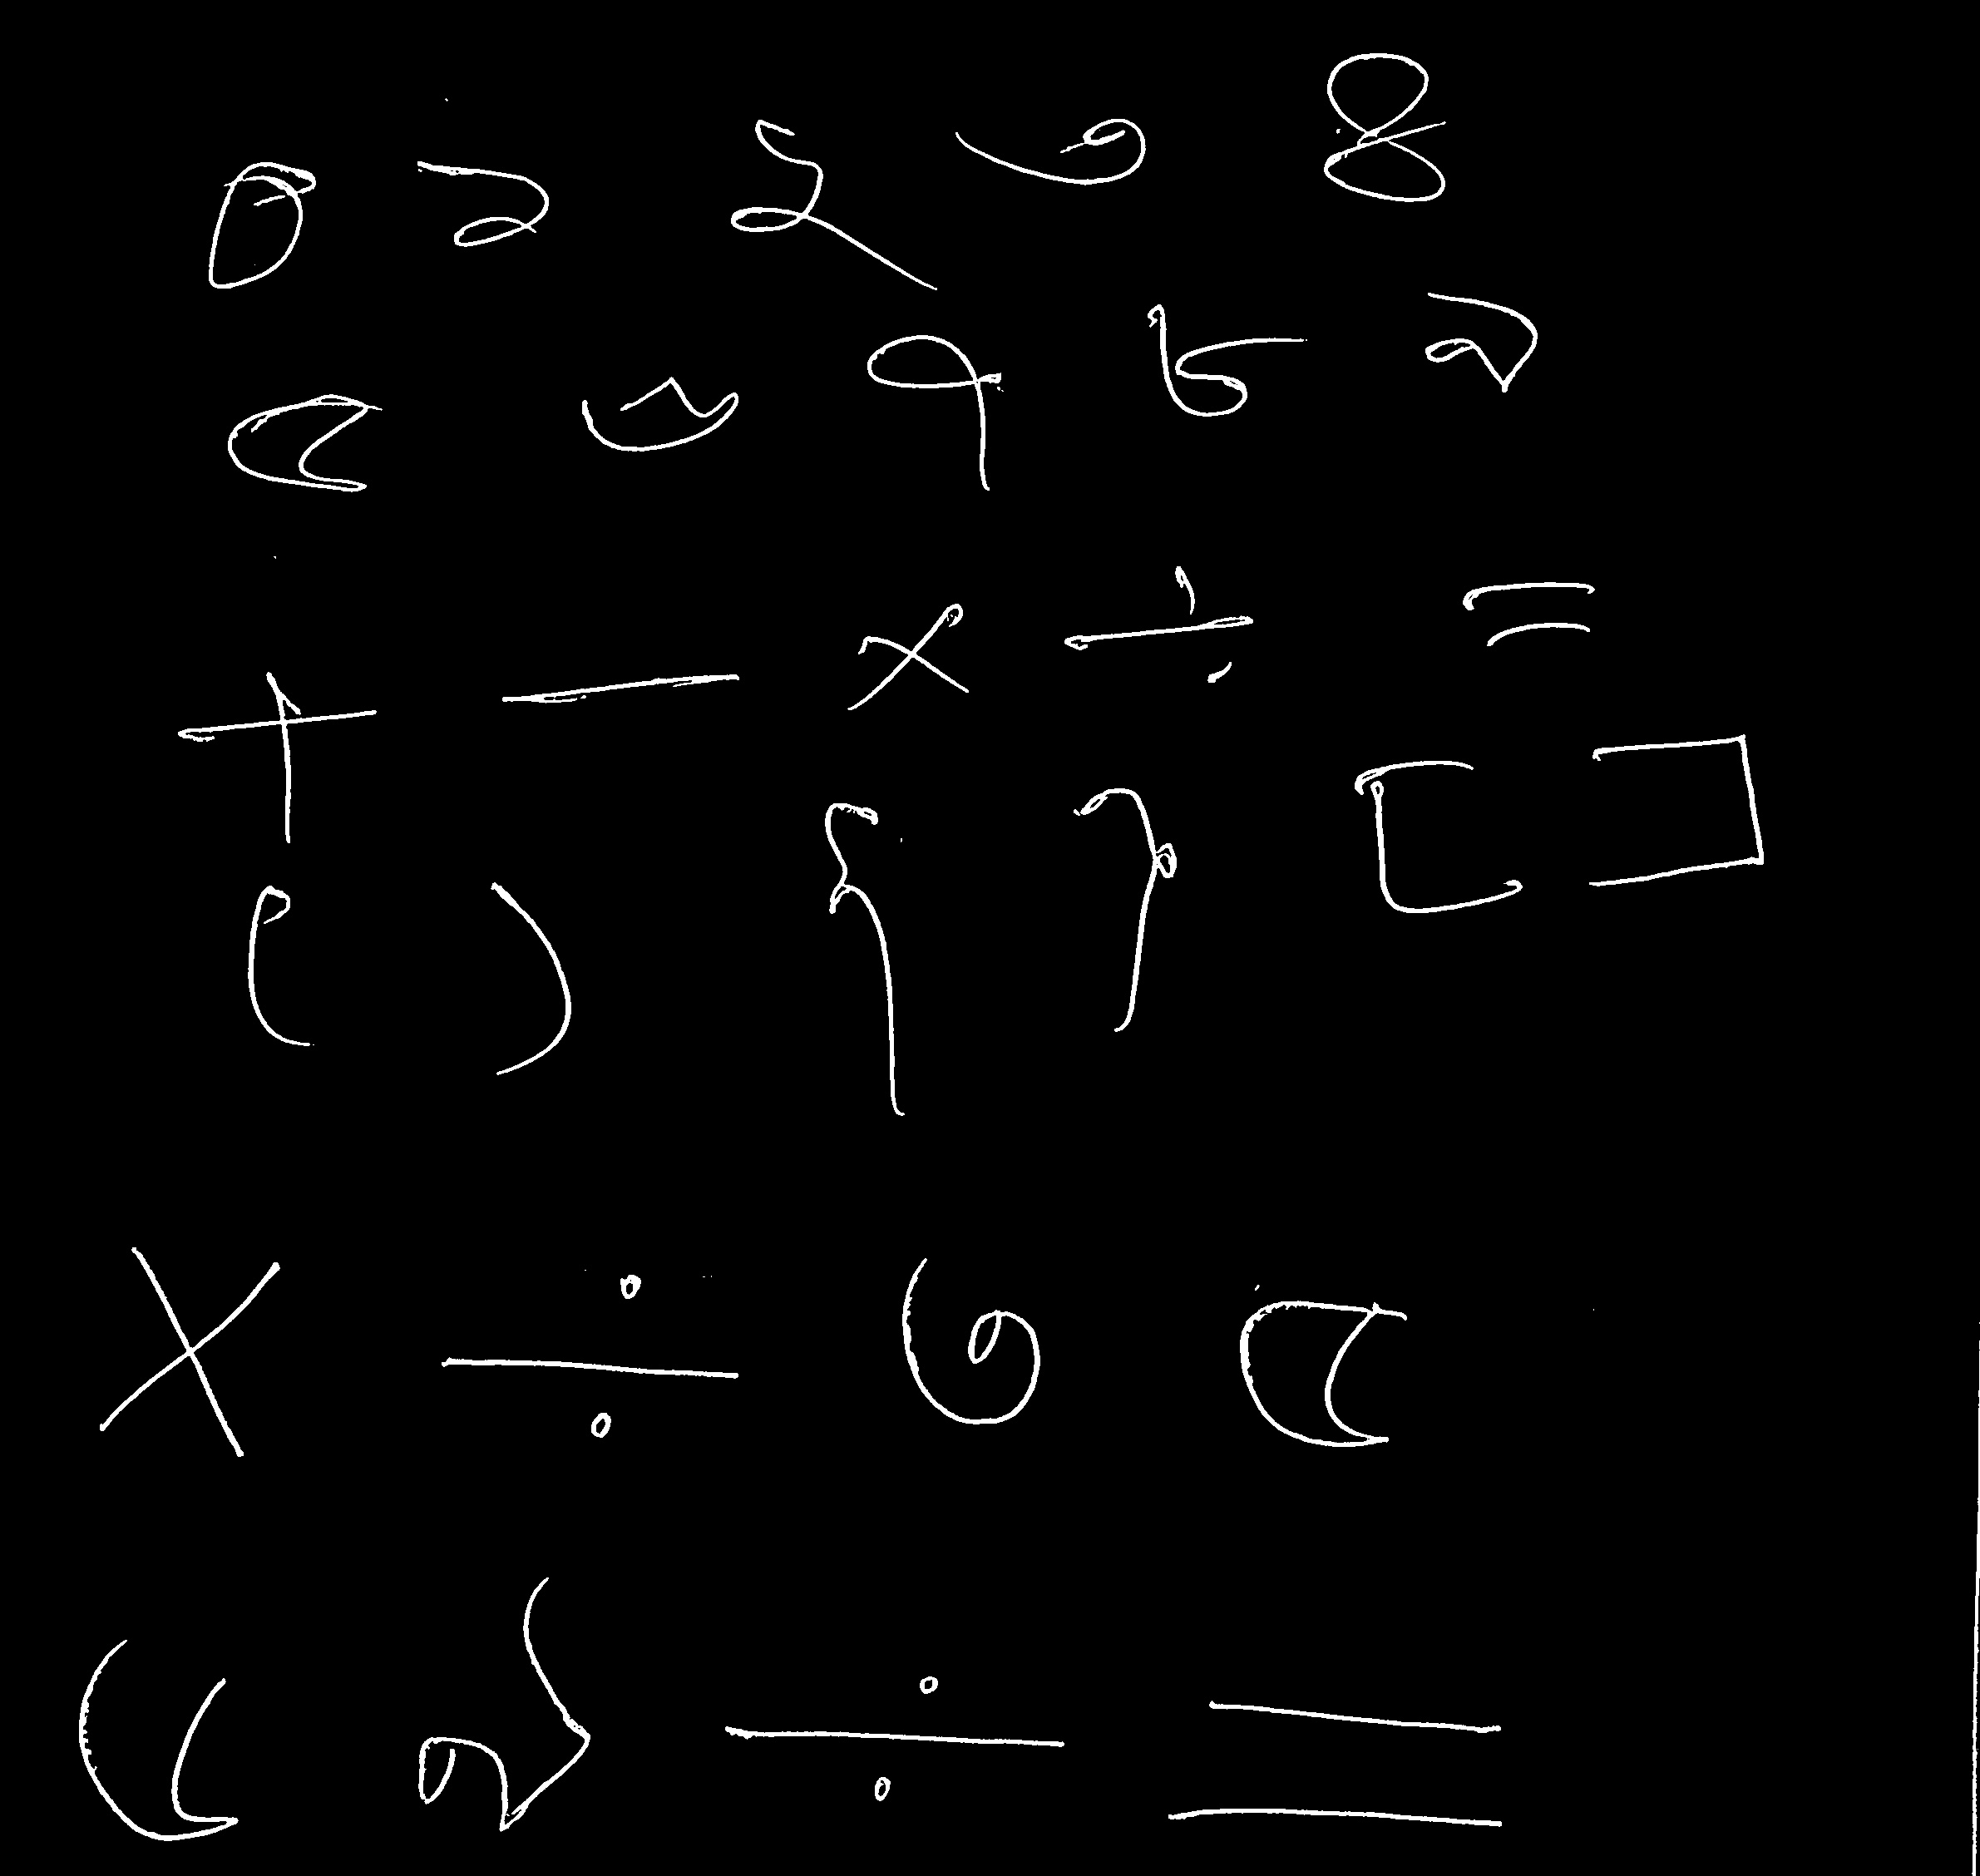 ০ ১ ২ ৩ ৪
৫ ৬ ৭ ৮ ৯
+ − × ÷ =
( ) { } [ ]
× ÷ ৩ ৫
৫ ৯ ÷ =